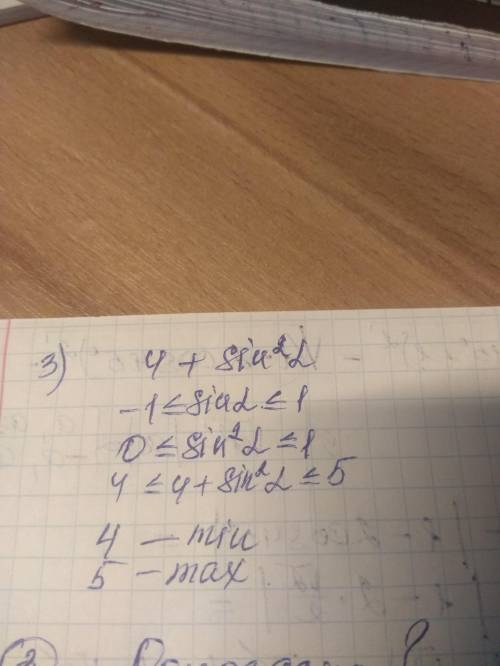 3) 4 + sin²α
-1 ≤ sinα ≤ 1
0 ≤ sin²α ≤ 1
4 ≤ 4 + sin²α ≤ 5
4 — min
5 — max
(2)